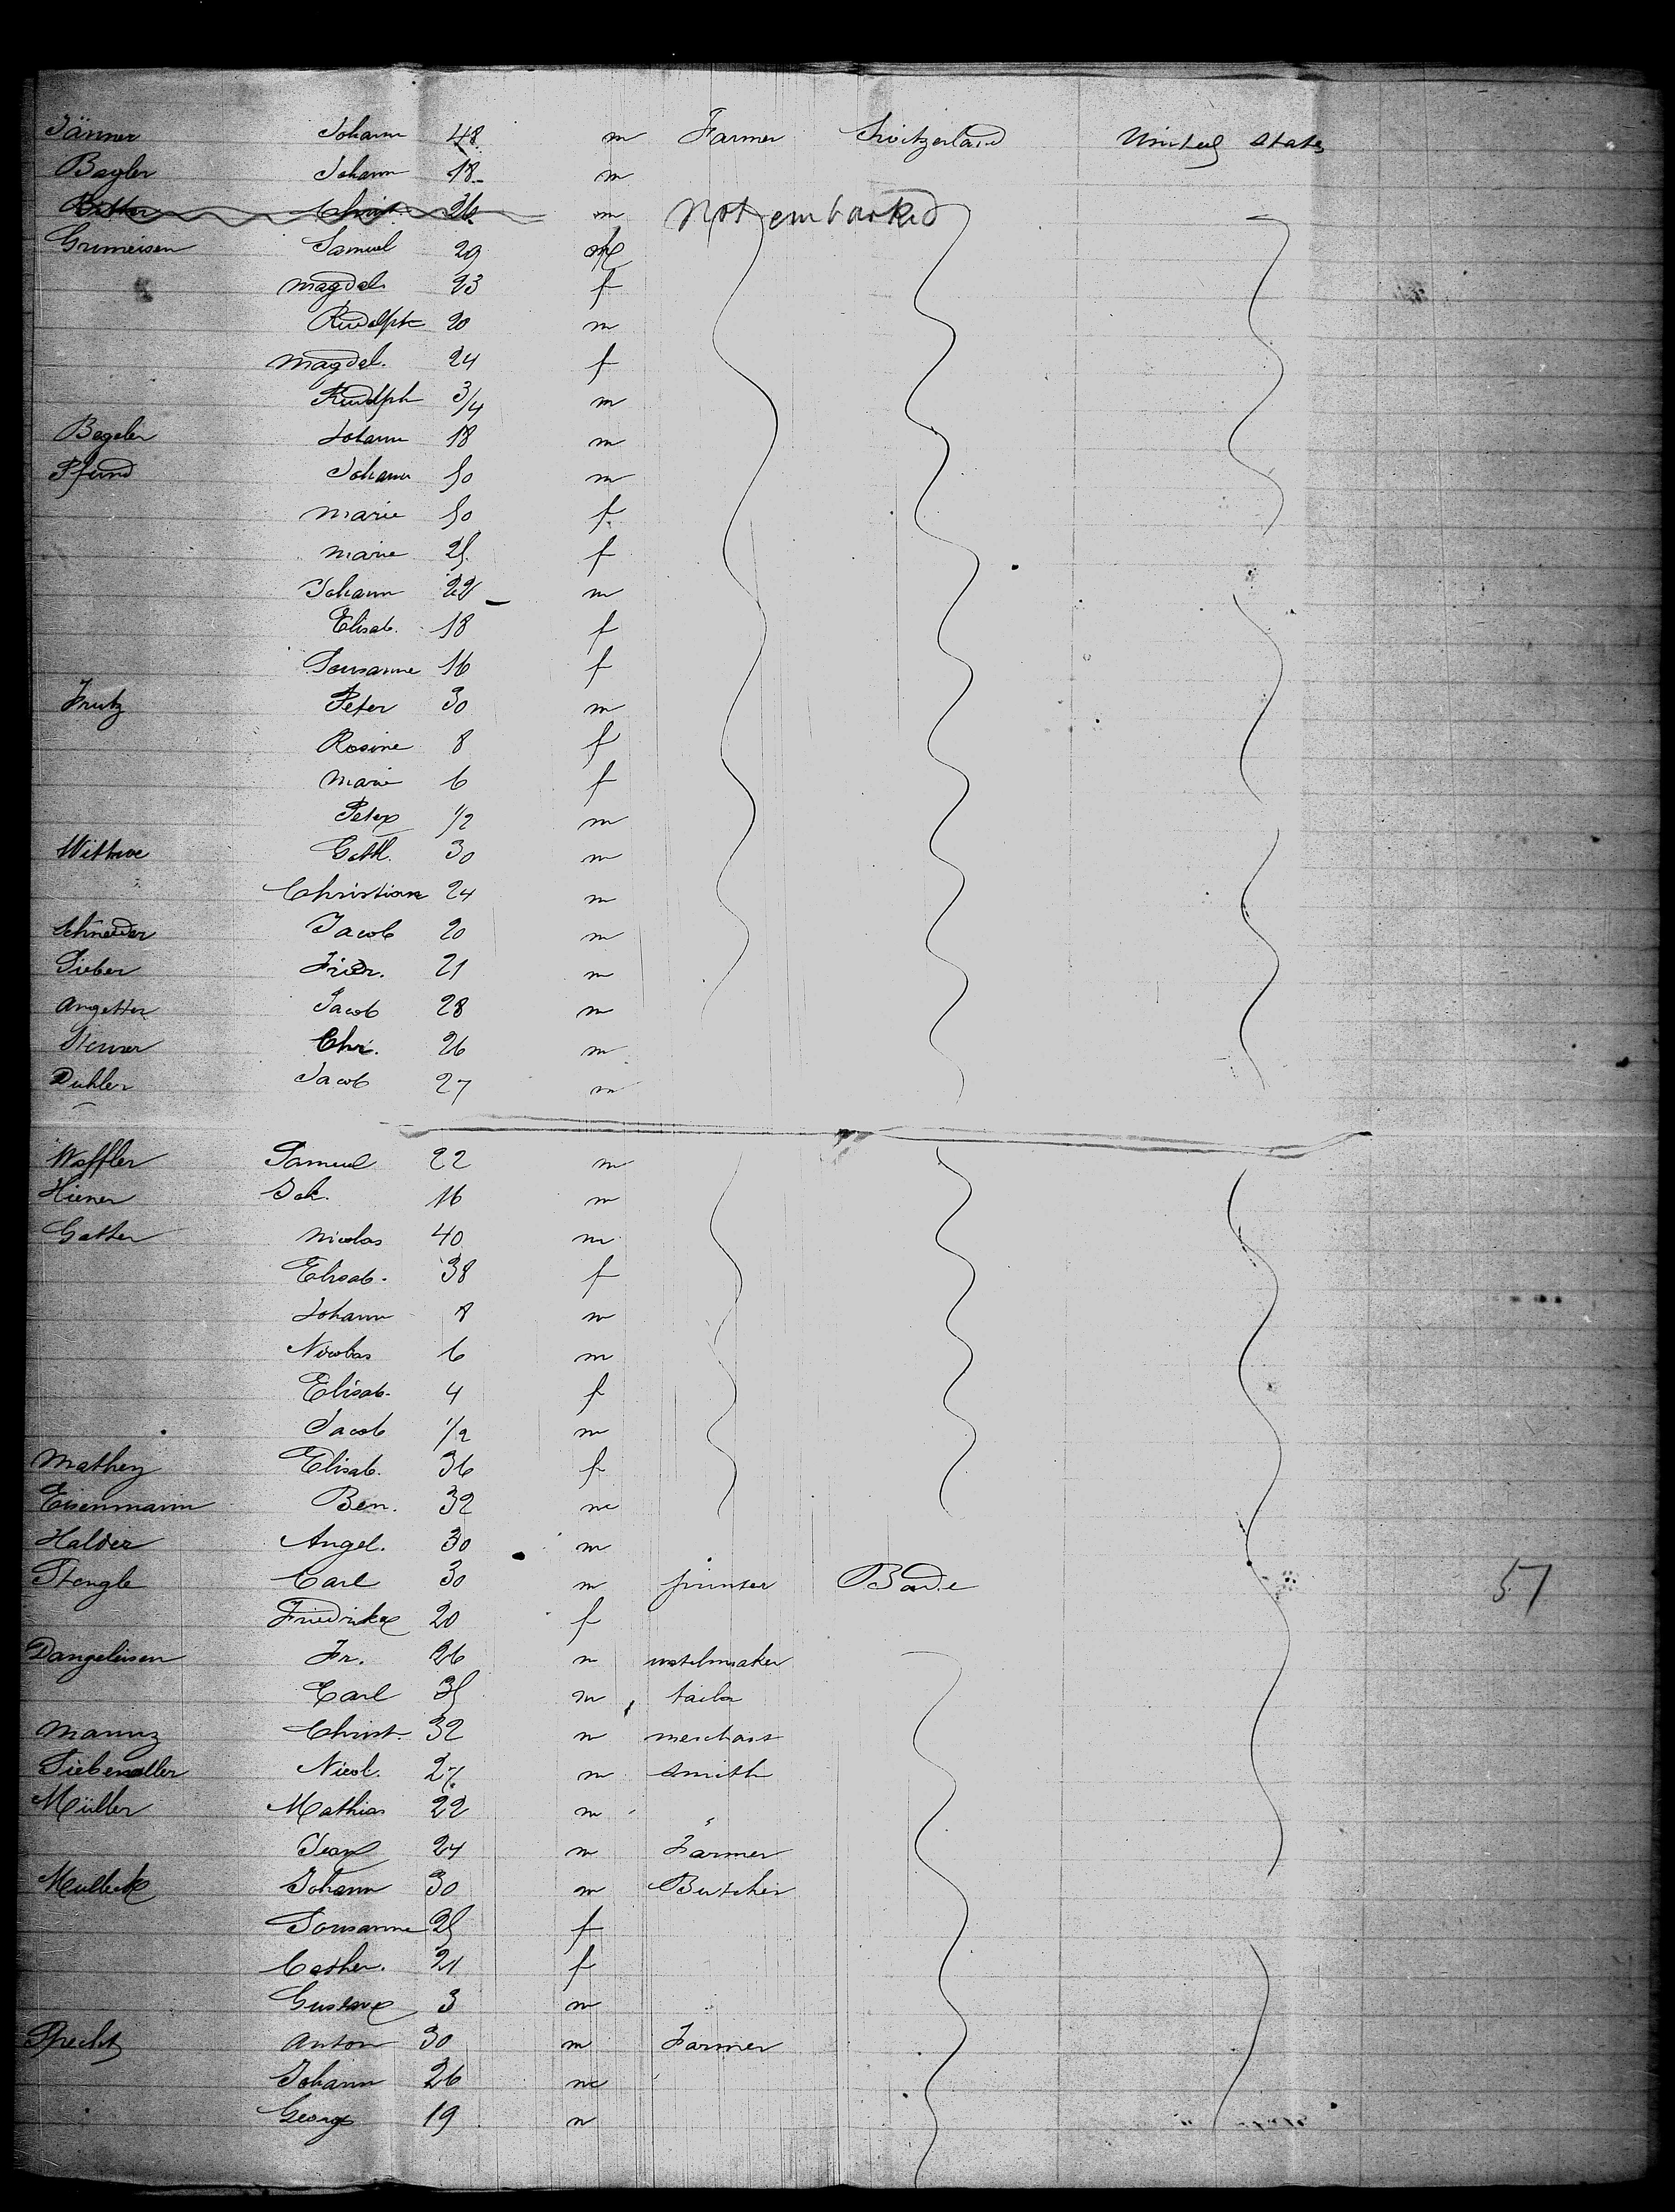 Jänner Johann 48 m Farmer Switzerland United States
Bagler Johann 18 m
Ritter Christ. 26 m Not embarked
Grumeisen Samuel 29 m
Magdal. 23 f
Rudolph 20 m
Magdal. 24 f
Rudolph 3/4 m
Bageler Johann 18 m
Pfund Johann 50 m
Marie 50 f
Marie 25 f
Johann 22 m
Elisab. 18 f
Sousanne 16 f
Frutz Peter 30 m
Rosine 8 f
Marie 6 f
Peter 1/2 m
Wittwe Gottl. 30 m
Christian 24 m
Schneider Jacob 20 m
Sieber Friedr. 21 m
Angetter Jacob 28 m
Chr. 26 m
Duhler Jacob 27 m
Waffler Samuel 22 m
Hiener Joh. 16 m
Gather Nicolas 40 m
Elisab. 38 f
Johann 8 m
Nicolas 6 m
Elisab. 4 f
Jacob 1/2 m
Mathey Elisab. 36 f
Eisenmann Ben. 32 m
Halder Angel. 30 m
Stengle Carl 30 m printer Bade
Friedrike 20 f
57
Dangeleisen Fr. 26 m
Carl 35 m tailor
Christ. 32 m merchant
Siebenaller Nicol. 27 m smith
Müller Mathias 22 m "
Jean 24 m Farmer
Johann 30 m Butcher
Sousanne 25 f
Cather. 21 f
Gustave 3 m
Specht Anton 30 m Farmer
Johann 26 m
George 19 m